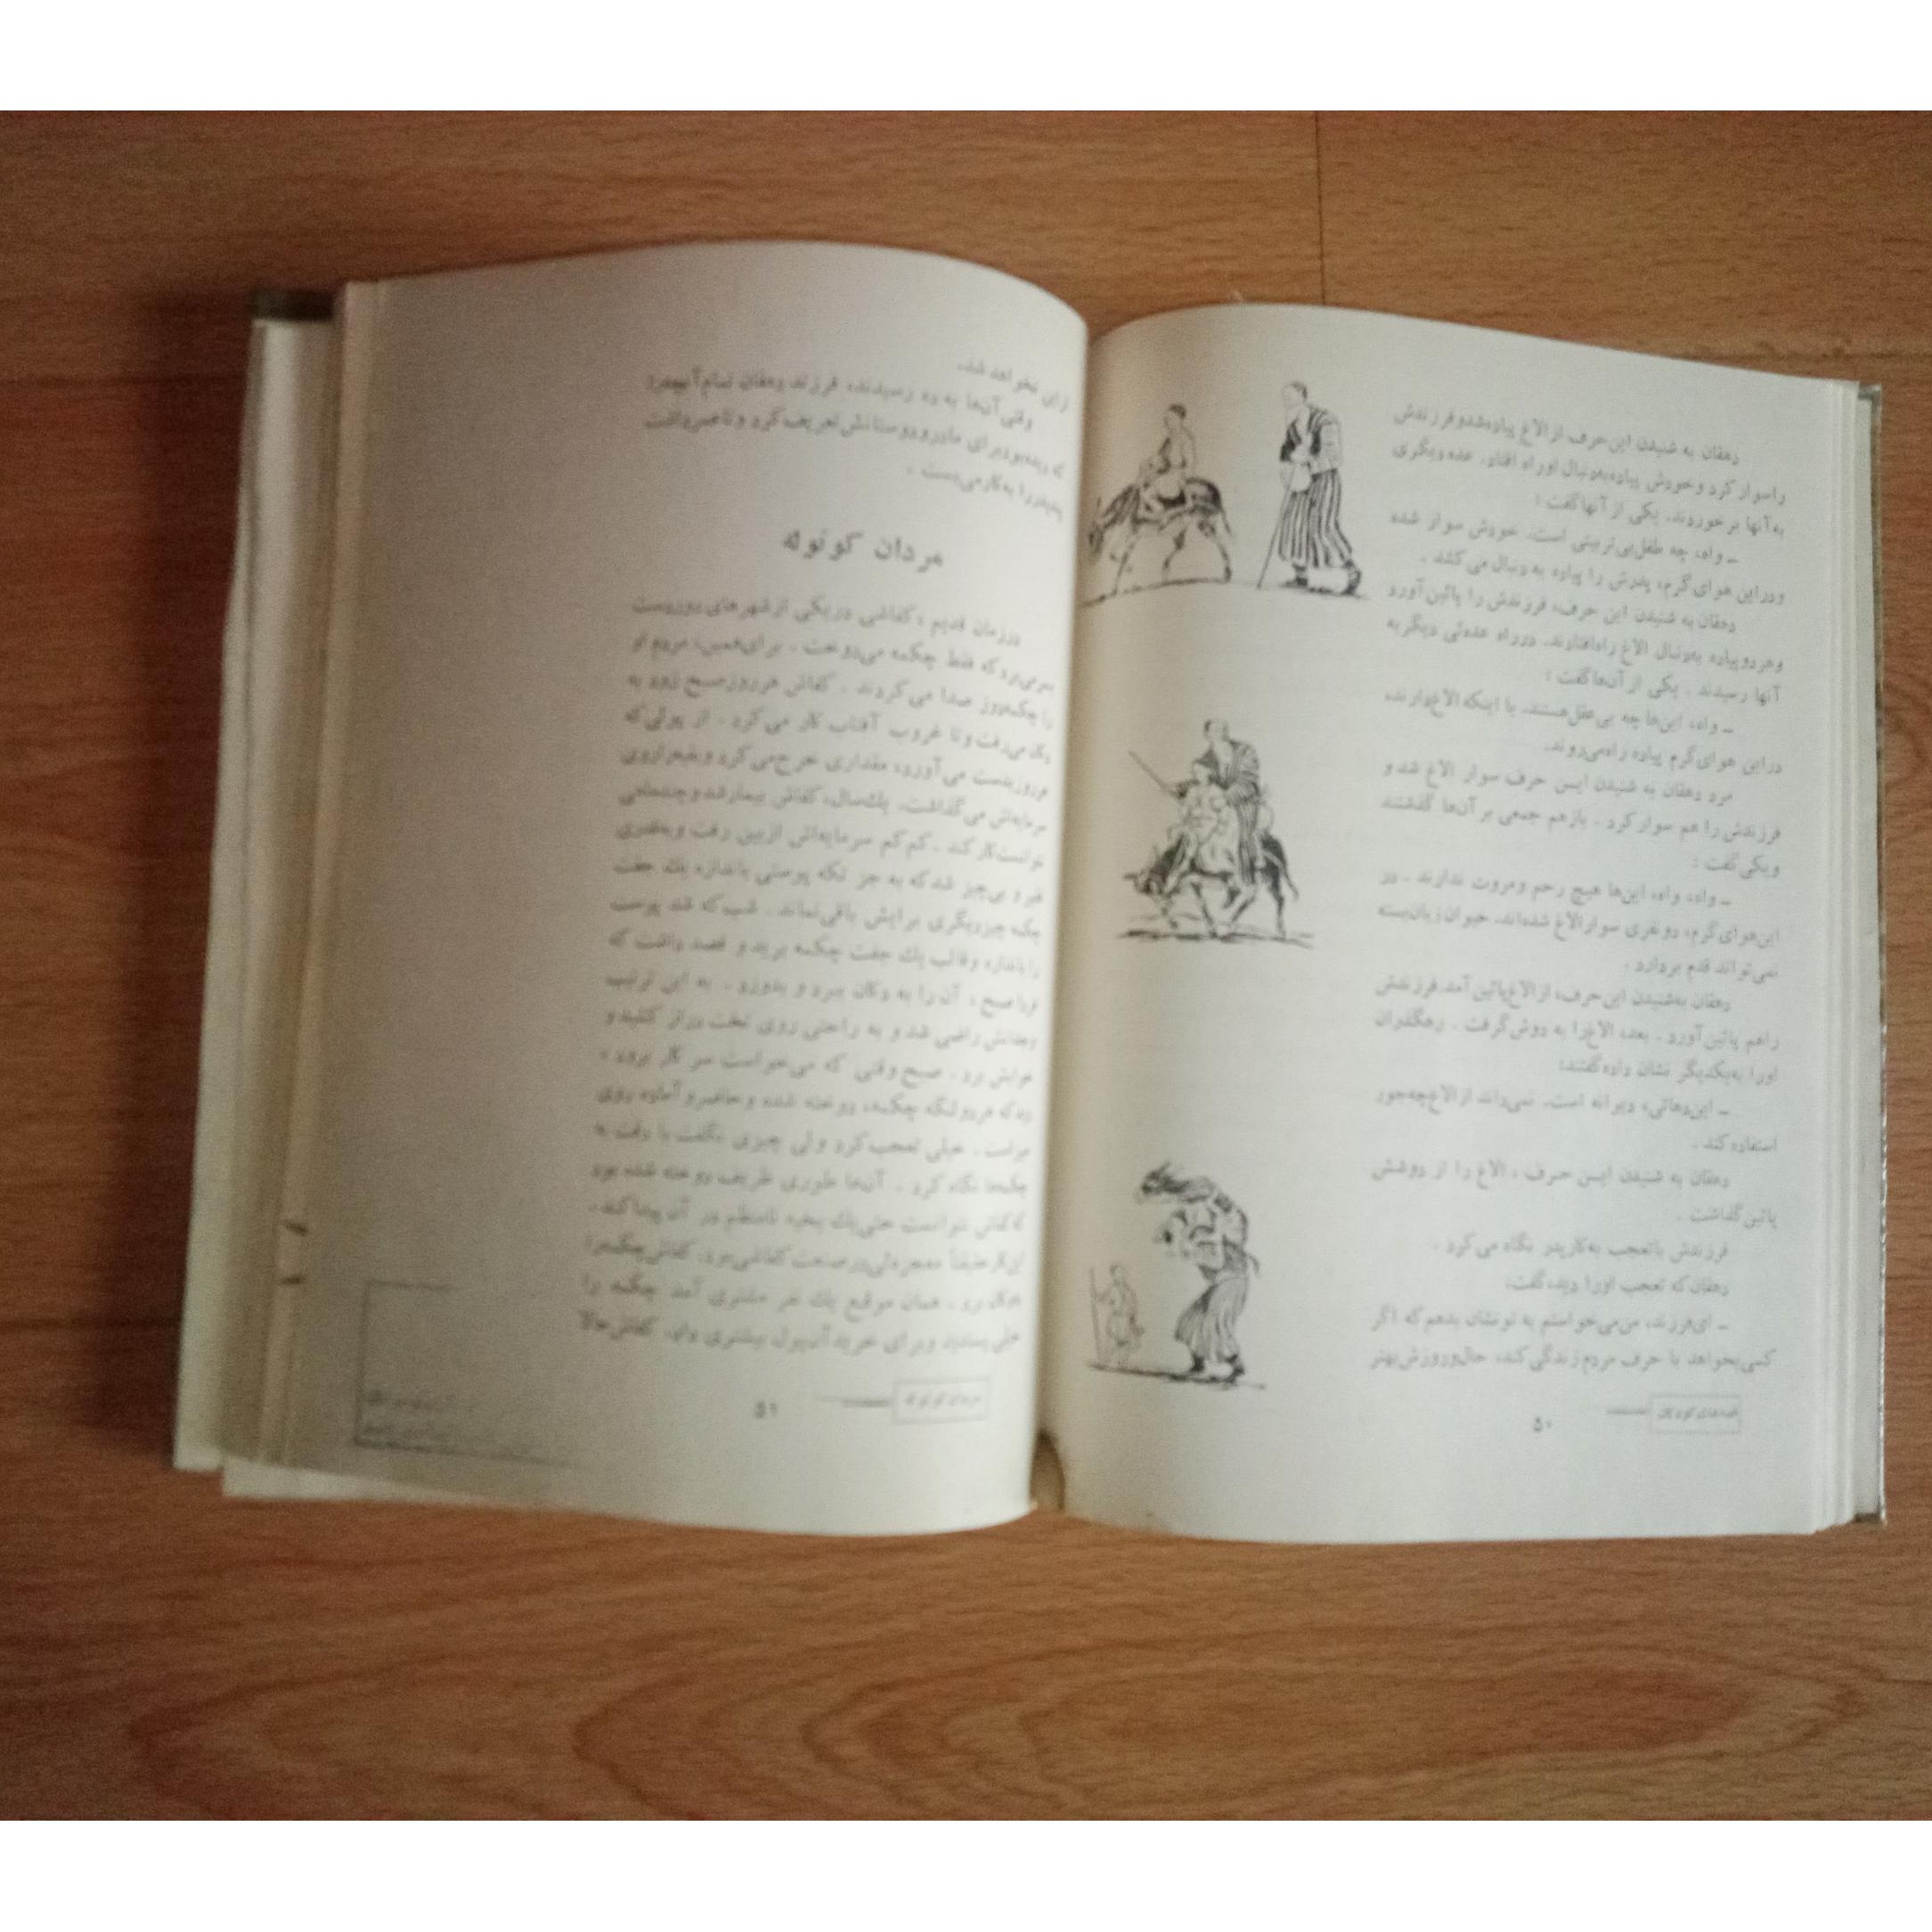 دهقان به شنیدن این حرف از الاغ پیاده شد و فرزندش
را سوار کرد و خودش پیاده به دنبال او راه افتاد. عده دیگری
به آنها برخوردند. یکی از آنها گفت :
ـ واه، چه طفل بی تربیتی است. خودش سوار شده
و در این هوای گرم، پدرش را پیاده به دنبال می کشد .
دهقان به شنیدن این حرف، فرزندش را پائین آورد
و هر دو پیاده به دنبال الاغ راه افتادند. در راه عده ئی دیگر به
آنها رسیدند . یکی از آن ها گفت :
ـ واه، این ها چه بی عقل هستند. با اینکه الاغ دارند،
در این هوای گرم پیاده راه می روند.
مرد دهقان به شنیدن ایـن حرف سوار الاغ شد و
فرزندش را هم سوار کرد . باز هم جمعی بر آن ها گذشتند
و یکی گفت :
ـ واه، واه، این ها هیچ رحم و مروت ندارند . در
این هوای گرم، دو نفری سوار الاغ شده اند. حیوان زبان بسته
نمی تواند قدم بردارد .
دهقان به شنیدن این حرف، از الاغ پائین آمد. فرزندش
را هم پائین آورد . بعد، الاغ را به دوش گرفت . رهگذران
او را به یکدیگر نشان داده گفتند:
ـ این دهاتی، دیوانه است. نمی داند از الاغ چه جور
استفاده کند .
دهقان به شنیدن ایـن حـرف ، الاغ را از دوشش
پائین گذاشت .
فرزندش با تعجب به کار پدر نگاه می کرد .
دهقان که تعجب او را دید، گفت:
ـ ای فرزند، من می خواستم به تو نشان بدهم که اگر
کسی بخواهد با حرف مردم زندگی کند، حال و روزش بهتر
قصه های کودکان
۵۰
از این نخواهد شد.
وقتی آن ها به ده رسیدند، فرزند دهقان تمام آنچه را
که دیده بود برای مادر و دوستانش تعریف کرد و تا عمر داشت
پند پدر را به کار می بست .
مردان کوتوله
در زمان قدیم ، کفاشی در یکی از شهرهای دوردست
بسر می برد که فقط چکمه می دوخت . برای همین، مردم او
را چکمه دوز صدا می کردند . کفاش هر روز صبح زود به
دکان می رفت و تا غروب آفتاب کار می کرد . از پولی که
هر روز بدست می آورد، مقداری خرج می کرد و بقیه را روی
سرمایه اش می گذاشت. یک سال، کفاش بیمار شد و چند ماهی
نتوانست کار کند . کم کم سرمایه اش از بین رفت و به قدری
فقیر و بی چیز شد که به جز تکه پوستی باندازه یک جفت
چکمه چیز دیگری برایش باقی نماند . شب که شد پوست
را باندازه و قالب یک جفت چکمه برید و قصد داشت که
فردا صبح ، آن را به دکان ببرد و بدوزد . به این ترتیب
وجدانش راضی شد و به راحتی روی تخت دراز کشید و
خوابش برد . صبح وقتی که می خواست سر کار برود ،
دید که هر دو لنگه چکمه، دوخته شده و حاضر و آماده روی
میز است . خیلی تعجب کرد ولی چیزی نگفت با دقت به
چکمه ها نگاه کرد . آن ها طوری ظریف دوخته شده بود
که کفاش نتوانست حتی یک بخیه نامنظم در آن پیدا کند .
این کار حقیقتاً معجزه ئی در صنعت کفاشی بود. کفاش چکمه را
به دکان برد . همان موقع یک نفر مشتری آمد چکمه را
خیلی پسندید و برای خرید آن پول بیشتری داد. کفاش حالا
۵۱